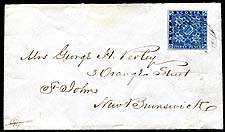 SCOTIA
Mrs George H.
3 Orange Street
St Johns
New Brunswick